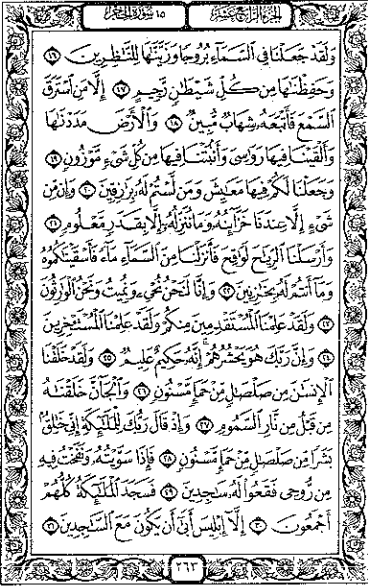 الجزء الرابع عشر ١٥ سورة الحجر
وَلَقَدْ جَعَلْنَا فِى ٱلسَّمَآءِ بُرُوجًا وَزَيَّنَّٰهَا لِلنَّٰظِرِينَ ﴿١٦﴾
وَحَفِظْنَٰهَا مِن كُلِّ شَيْطَٰنٍ رَّجِيمٍ ﴿١٧﴾ إِلَّا مَنِ ٱسْتَرَقَ
ٱلسَّمْعَ فَأَتْبَعَهُۥ شِهَابٌ مُّبِينٌ ﴿١٨﴾ وَٱلْأَرْضَ مَدَدْنَٰهَا
وَأَلْقَيْنَا فِيهَا رَوَٰسِىَ وَأَنۢبَتْنَا فِيهَا مِن كُلِّ شَىْءٍ مَّوْزُونٍ ﴿١٩﴾
وَجَعَلْنَا لَكُمْ فِيهَا مَعَٰيِشَ وَمَن لَّسْتُمْ لَهُۥ بِرَٰزِقِينَ ﴿٢٠﴾ وَإِن مِّن
شَىْءٍ إِلَّا عِندَنَا خَزَآئِنُهُۥ وَمَا نُنَزِّلُهُۥٓ إِلَّا بِقَدَرٍ مَّعْلُومٍ ﴿٢١﴾
وَأَرْسَلْنَا ٱلرِّيَٰحَ لَوَٰقِحَ فَأَنزَلْنَا مِنَ ٱلسَّمَآءِ مَآءً فَأَسْقَيْنَٰكُمُوهُ
وَمَآ أَنتُمْ لَهُۥ بِخَٰزِنِينَ ﴿٢٢﴾ وَإِنَّا لَنَحْنُ نُحْىِۦ وَنُمِيتُ وَنَحْنُ ٱلْوَٰرِثُونَ
﴿٢٣﴾ وَلَقَدْ عَلِمْنَا ٱلْمُسْتَقْدِمِينَ مِنكُمْ وَلَقَدْ عَلِمْنَا ٱلْمُسْتَـْٔخِرِينَ
﴿٢٤﴾ وَإِنَّ رَبَّكَ هُوَ يَحْشُرُهُمْ إِنَّهُۥ حَكِيمٌ عَلِيمٌ ﴿٢٥﴾ وَلَقَدْ خَلَقْنَا
ٱلْإِنسَٰنَ مِن صَلْصَٰلٍ مِّنْ حَمَإٍ مَّسْنُونٍ ﴿٢٦﴾ وَٱلْجَآنَّ خَلَقْنَٰهُ
مِن قَبْلُ مِن نَّارِ ٱلسَّمُومِ ﴿٢٧﴾ وَإِذْ قَالَ رَبُّكَ لِلْمَلَٰٓئِكَةِ إِنِّى خَٰلِقٌۢ
بَشَرًا مِّن صَلْصَٰلٍ مِّنْ حَمَإٍ مَّسْنُونٍ ﴿٢٨﴾ فَإِذَا سَوَّيْتُهُۥ وَنَفَخْتُ فِيهِ
مِن رُّوحِى فَقَعُوا۟ لَهُۥ سَٰجِدِينَ ﴿٢٩﴾ فَسَجَدَ ٱلْمَلَٰٓئِكَةُ كُلُّهُمْ
أَجْمَعُونَ ﴿٣٠﴾ إِلَّآ إِبْلِيسَ أَبَىٰٓ أَن يَكُونَ مَعَ ٱلسَّٰجِدِينَ ﴿٣١﴾
٢٦٣